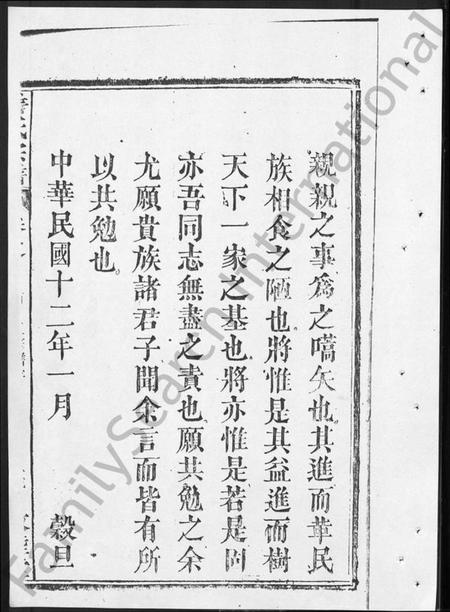 親親之事爲之嚆矢也其進而華民
族相食之陋也將惟是其益進而樹
天下一家之基也將亦惟是若是固
亦吾同志無盡之責也願共勉之余
尤願貴族諸君子聞余言而皆有所
以共勉也。
中華民國十二年一月 穀旦
FamilySearch International